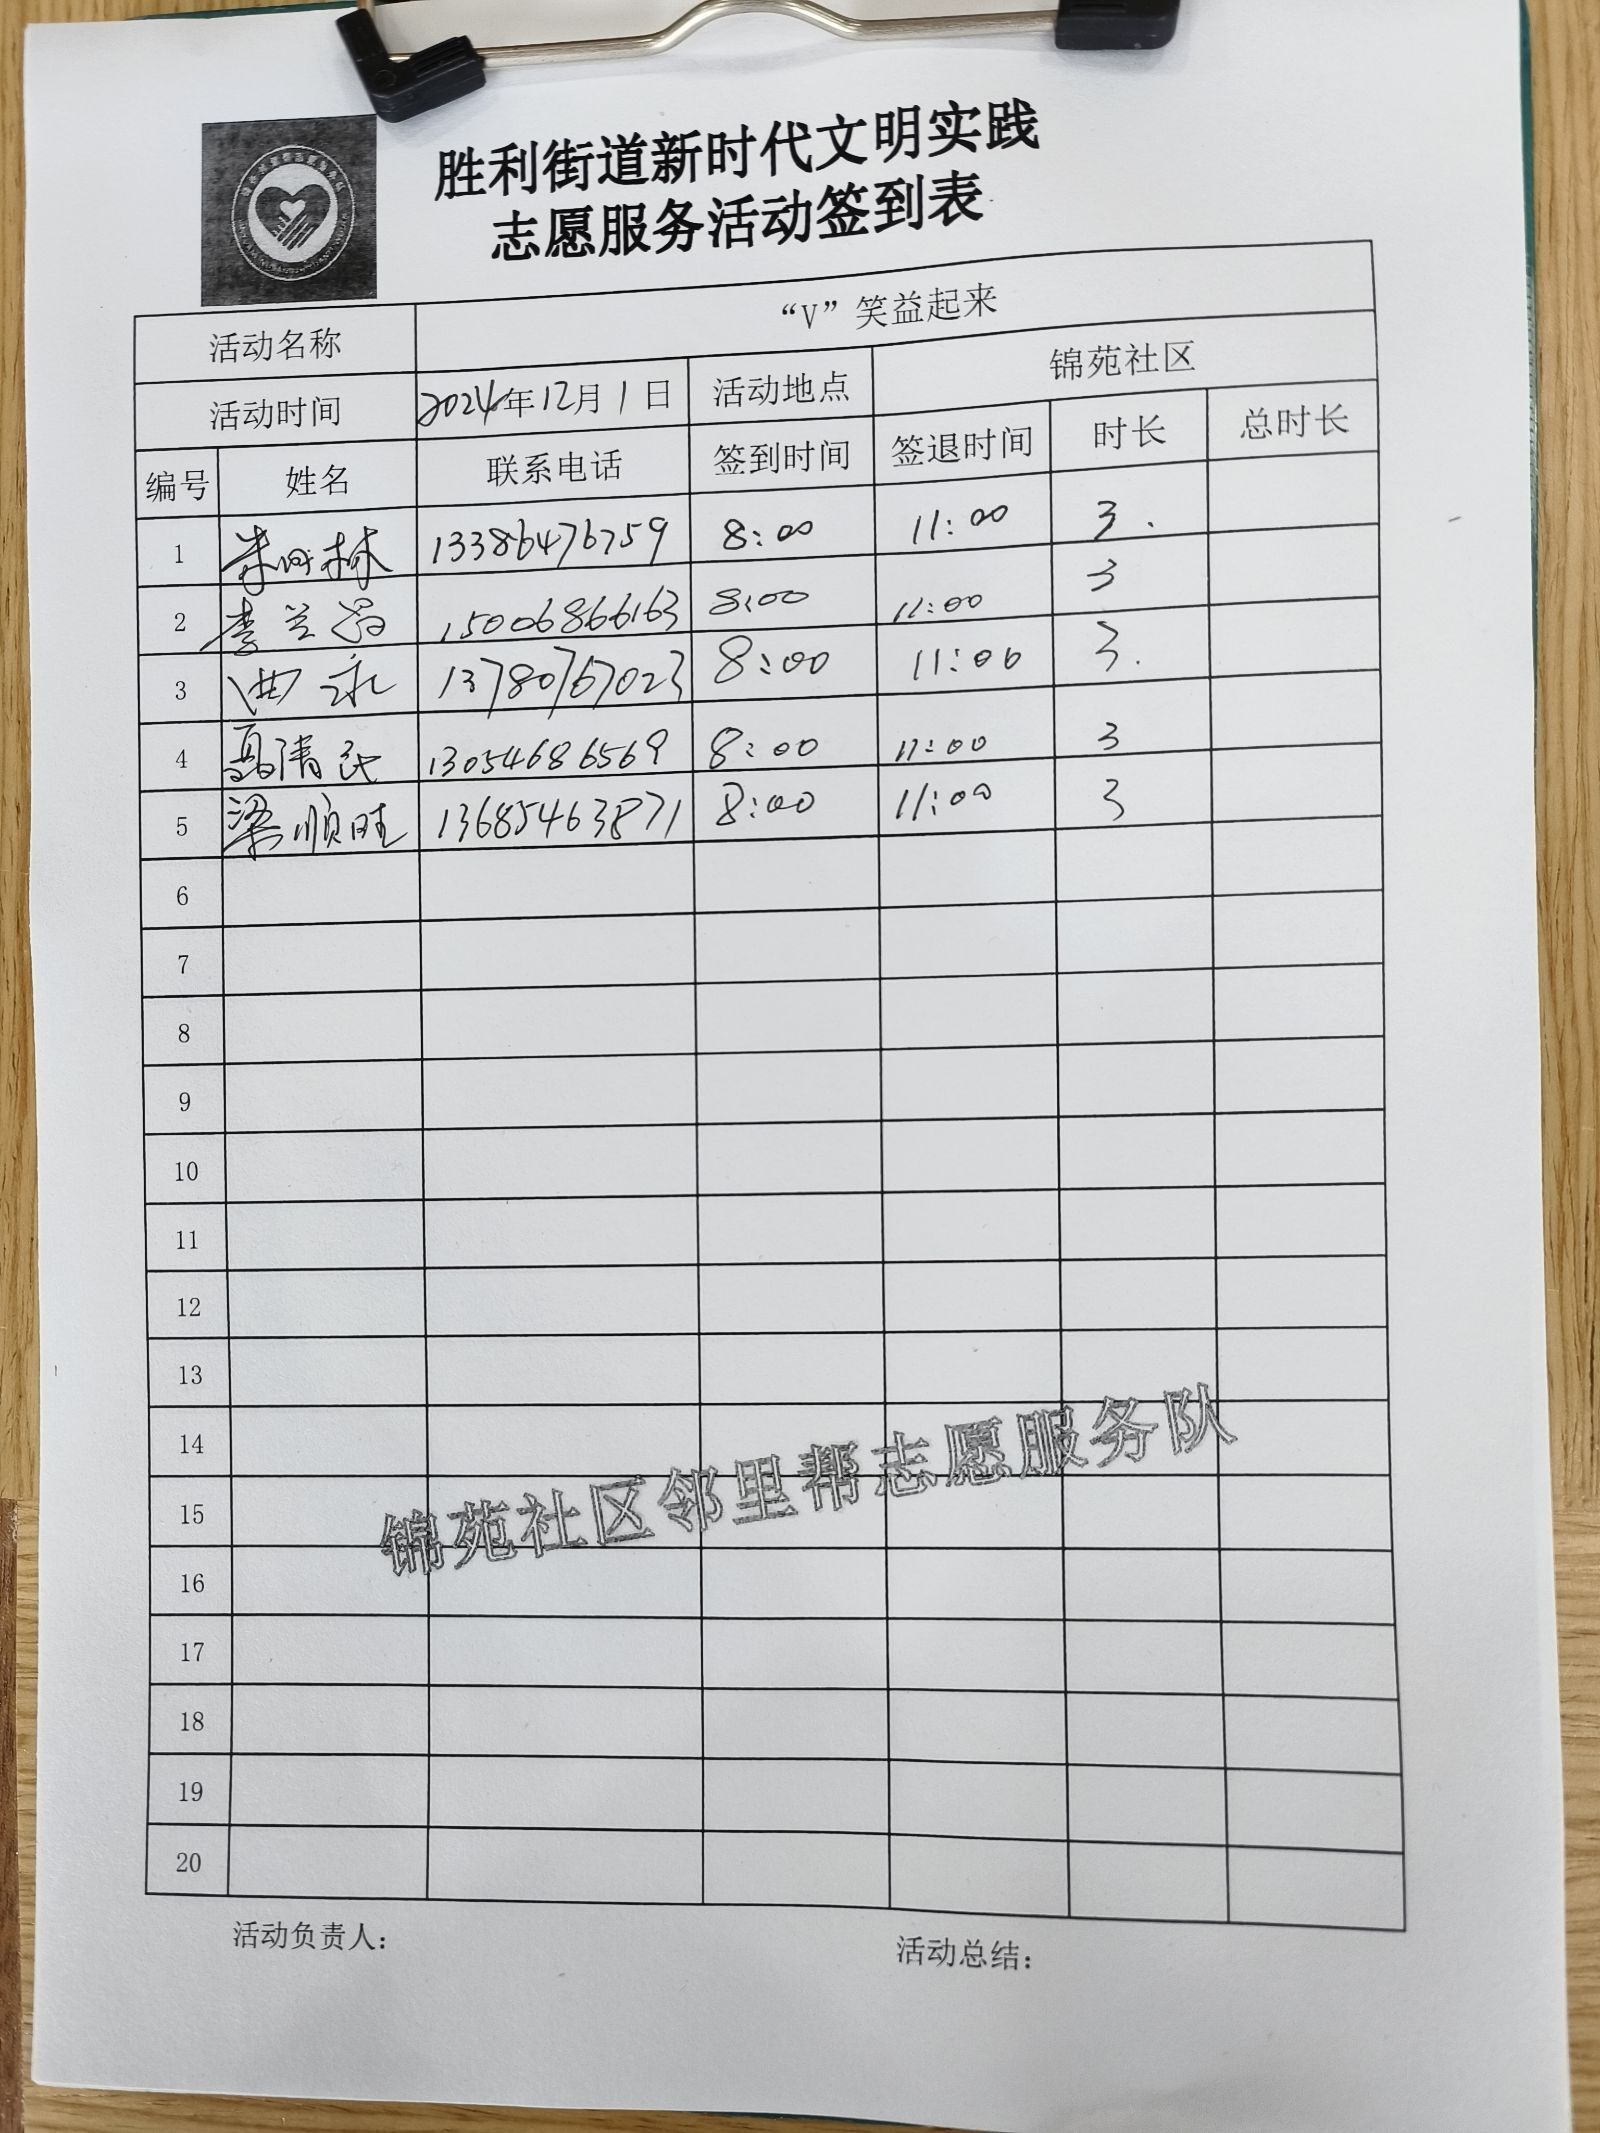 胜利街道新时代文明实践
志愿服务活动签到表
活动名称 “V”笑益起来
活动时间 2024年12月1日 活动地点 锦苑社区
编号 姓名 联系电话 签到时间 签退时间 时长 总时长
1 林 13386476759 8:00 11:00 3.
2 李兰 15006866163 8:00 11:00 3
3 曲永 13780767023 8:00 11:00 3.
4 清 13054686569 8:00 11:00 3
5 梁顺旺 13685463871 8:00 11:00 3
6
7
8
9
10
11
12
13
14
15
16
17
18
19
20
锦苑社区邻里帮志愿服务队
活动负责人： 活动总结：